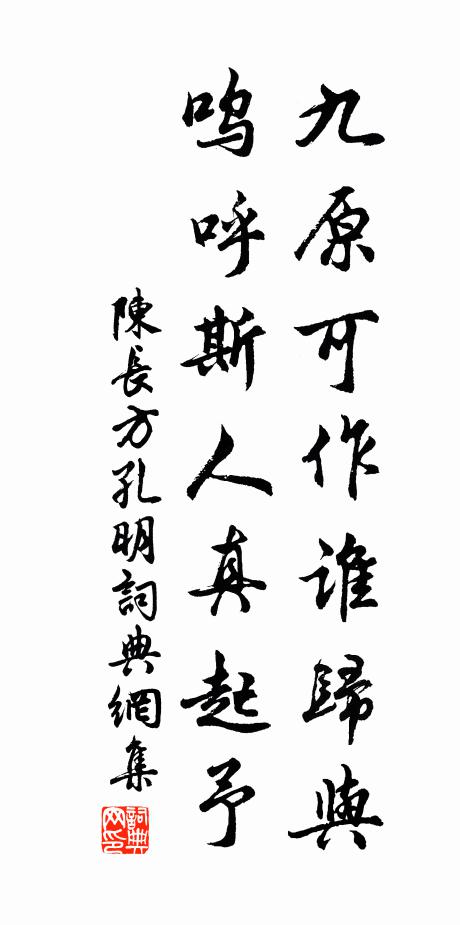 九原可作誰歸與
嗚呼斯人真起予
陳長方孔明詞典網集
詞典網印